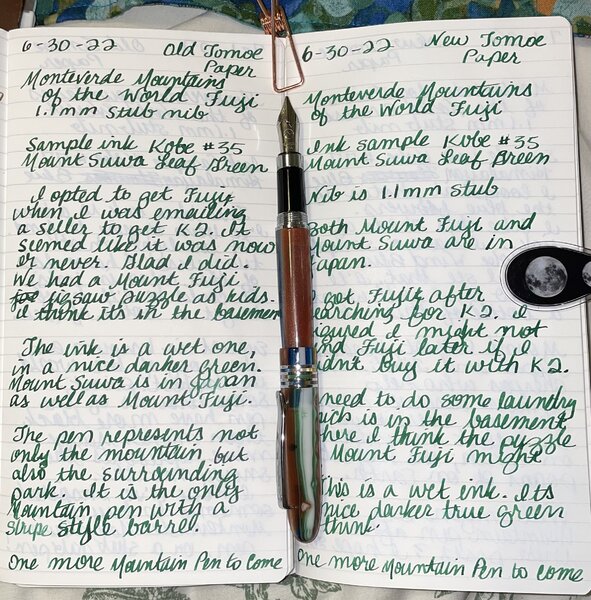 6-30-22 Old Tomoe
Paper
Monteverde Mountains
of the World Fuji
1.1mm Stub nib
Sample ink Kobe #35
Mount Suwa Leaf Green
I opted to get Fuji
when I was emailing
a seller to get K2. It
seemed like it was now
or never. Glad I did.
We had a Mount Fuji
for jigsaw puzzle as kids.
I think its in the basement
The ink is a wet one,
in a nice darker green.
Mount Suwa is in Japan
as well as Mount Fuji.
The pen represents not
only the mountain but
also the surrounding
park. It is the only
Mountain pen with a
stripe style barrel.
One more Mountain Pen to come
6-30-22 New Tomoe
Paper
Monteverde Mountains
of the World Fuji
Ink sample Kobe #35
Mount Suwa Leaf Green
Nib is 1.1mm stub
Both Mount Fuji and
Mount Suwa are in
Japan.
I got Fuji after
searching for K2. I
figured I might not
find Fuji later if I
didnt buy it with K2.
need to do some laundry
which is in the basement
where I think the puzzle
Mount Fuji might
This is a wet ink. Its
nice darker true green
think.
One more Mountain Pen to come